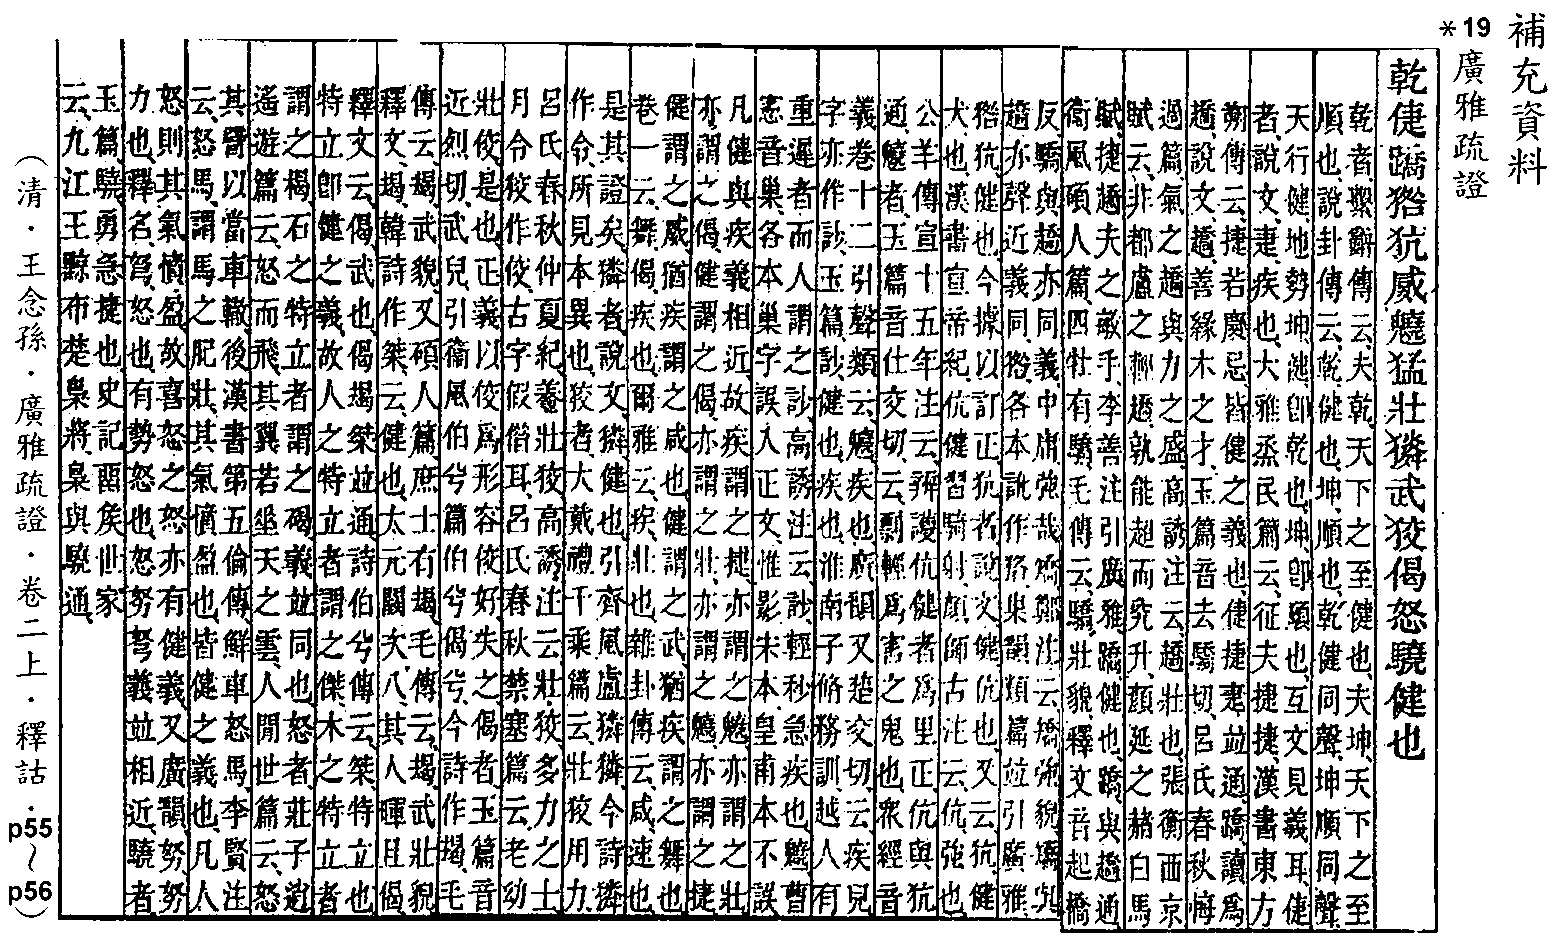 補充資料
*19 廣雅疏證
乾倢蹻㹊犺威䰫猛壯獜武狡偈怒驍健也
乾者、繫辭傳云、夫乾、天下之至健也、夫坤、天下之至
順也、說卦傳云、乾健也、坤順也、乾健同聲、坤順同聲
天行健、地勢坤、健卽乾也、坤卽順也、互文見義耳、倢
者、說文、疌、疾也、大雅烝民篇云、征夫捷捷、漢書東方
朔傳云、捷若慶忌、皆健之義也、倢捷疌並通、蹻讀爲
趫、說文、趫、善緣木之才、玉篇音去驕切、呂氏春秋悔
過篇、氣之趫與力之盛、高誘注云、趫、壯也、張衡西京
賦云、非都盧之輕趫、孰能超而究升、顏延之赭白馬
賦、捷趫夫之敏手、李善注引廣雅、蹻、健也、蹻與趫通
衞風碩人篇、四牡有驕、毛傳云、驕、壯貌、釋文音起橋
反、驕與趫亦同義、中庸強哉矯、鄭注云、矯、強貌、矯與
趫亦聲近義同、㹊、各本訛作狢、集韻類篇並引廣雅
㹊、犺、健也、今據以訂正、犺者、說文、健犬也、又云、犺、健
犬也、漢書宣帝紀、伉健習騎射、顏師古注云、伉、強也
公羊傳宣十五年注云、辯護伉健者爲里正、伉與犺
通、䰫者、玉篇音仕交切、云、剽輕爲害之鬼也、衆經音
義卷十二引聲類云、䰫、疾也、廣韻又楚交切、云、疾皃
字亦作訬、玉篇、訬、健也、疾也、淮南子脩務訓、越人有
重遲者、而人謂之訬、高誘注云、訬、輕利急疾也、䰫、曹
憲音巢、各本巢字誤入正文、惟影宋本皇甫本不誤
凡健與疾義相近、故疾謂之捷、亦謂之䰫、亦謂之壯
亦謂之偈、健謂之偈、亦謂之壯、亦謂之䰫、亦謂之捷
健謂之威、猶疾謂之咸也、健謂之武、猶疾謂之舞也
卷一云、舞、偈、疾也、爾雅云、疾、壯也、雜卦傳云、咸、速也
是其證矣、獜者、說文、獜、健也、引齊風盧獜獜、今詩獜
作令、所見本異也、狡者、大戴禮千乘篇云、壯狡用力
呂氏春秋仲夏紀養壯狡、高誘注云、壯狡、多力之士
月令狡作佼、古字假借耳、呂氏春秋禁塞篇云、老幼
壯佼是也、正義以佼爲形容佼好、失之、偈者、玉篇音
近烈切、武皃、引衞風伯兮篇、伯兮偈兮、今詩作朅、毛
傳云、朅、武貌、又碩人篇、庶士有朅、毛傳云、朅、武壯貌
釋文、朅、韓詩作桀、云、健也、太元闞次八、其人暉且偈
釋文云、偈、武也、偈朅桀並通、詩伯兮傳云、桀、特立也
特立卽健之義、故人之特立者謂之傑、木之特立者
謂之楬、石之特立者謂之碣、義並同也、怒者、莊子逍
遙遊篇云、怒而飛、其翼若垂天之雲、人閒世篇云、怒
其臂以當車轍、後漢書第五倫傳、鮮車怒馬、李賢注
云、怒馬、謂馬之肥壯、其氣憤盈也、皆健之義也、凡人
怒則其氣憤盈、故喜怒之怒亦有健義、又廣韻、努、努
力也、釋名、弩、怒也、有勢怒也、怒努弩義並相近、驍者
玉篇、驍、勇急捷也、史記畱矦世家
云、九江王黥布、楚梟將、梟與驍通、
（清．王念孫．廣雅疏證．卷二上．釋詁．p55～p56）